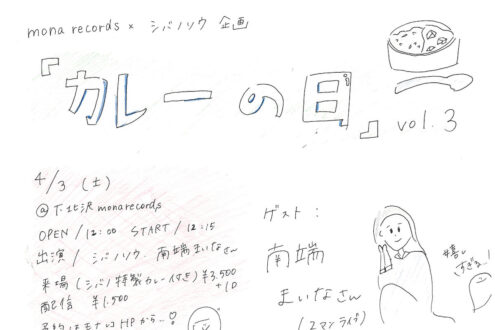 mona records × シバノソウ 企画
『カレーの日』 vol.3
4/3 (土)
@下北沢monarecords
OPEN/12:00 START/12:15
出演/シバノソウ、南端まいなさん
来場(シバノ特製カレー付き)¥3,500
+1D
配信 ¥1,500
予約はモナレコHPから…♡
ゲスト:
南端
まいなさん
(ヱマンライブ)
嬉し
すぎる!